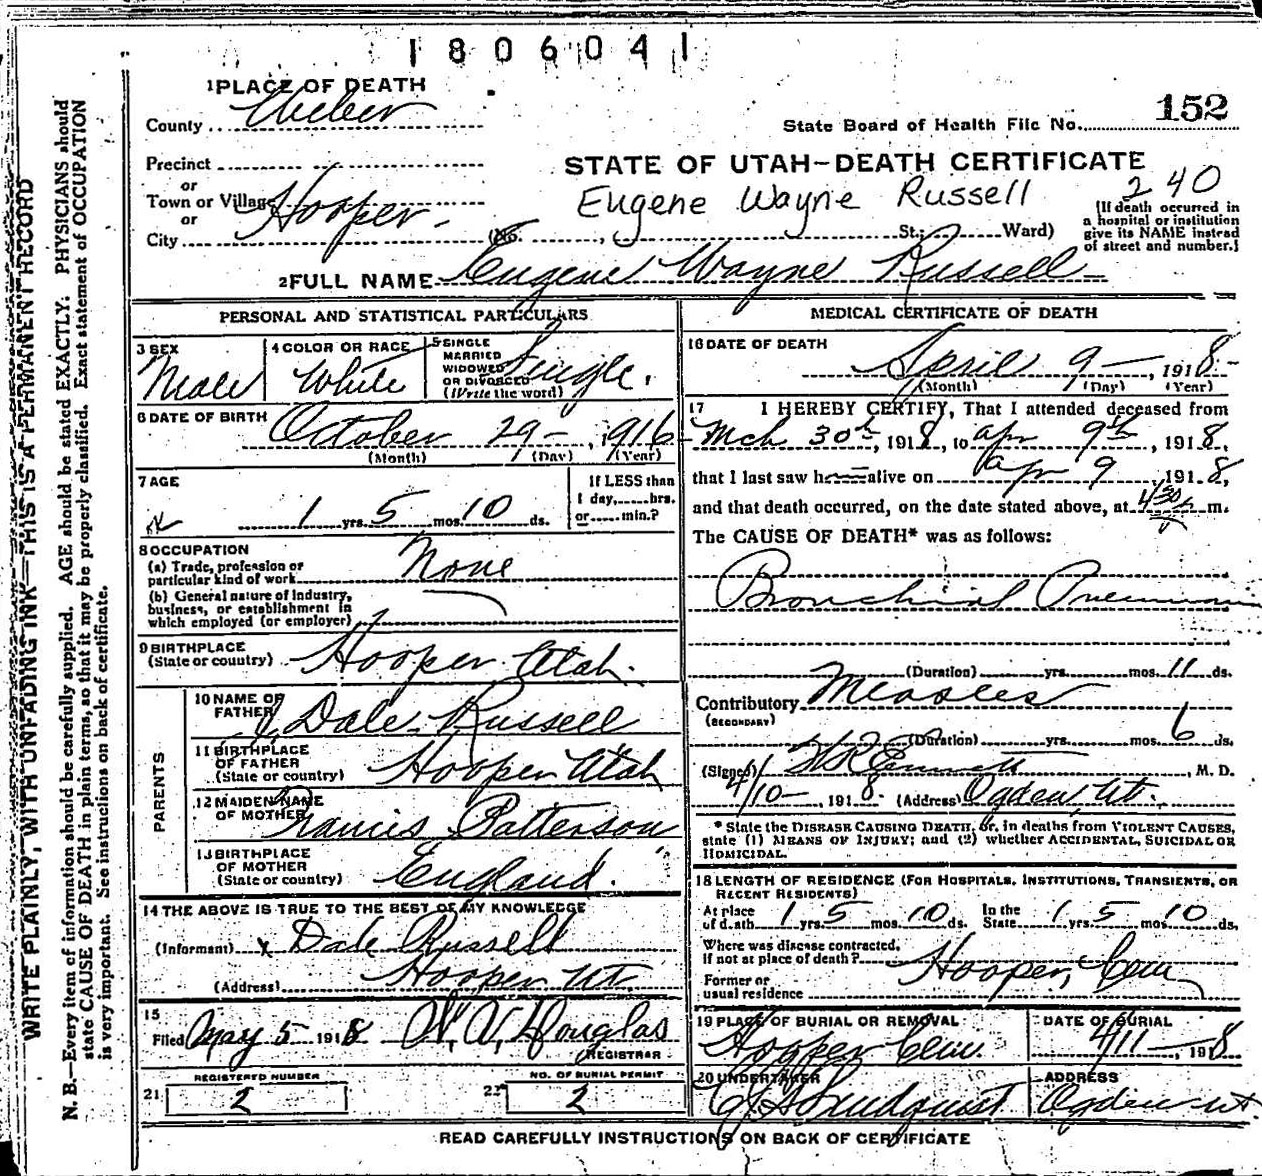 1806041
1 PLACE OF DEATH
County Weber
State Board of Health File No. 152
Precinct
STATE OF UTAH—DEATH CERTIFICATE
or
Town or Village Hooper
Eugene Wayne Russell
240
or
City (No. , St.; Ward)
(If death occurred in
a hospital or institution
give its NAME instead
of street and number.)
2 FULL NAME Eugene Wayne Russell
PERSONAL AND STATISTICAL PARTICULARS
3 SEX
Male
4 COLOR OR RACE
White
5 SINGLE
MARRIED
WIDOWED
OR DIVORCED
(Write the word)
Single.
6 DATE OF BIRTH
October 29 - , 1916
(Month) (Day) (Year)
7 AGE
1 yrs. 5 mos. 10 ds.
If LESS than
1 day, hrs.
or min.?
8 OCCUPATION
(a) Trade, profession or
particular kind of work None
(b) General nature of industry,
business, or establishment in
which employed (or employer)
9 BIRTHPLACE
(State or country) Hooper Utah.
PARENTS
10 NAME OF
FATHER Dale Russell
11 BIRTHPLACE
OF FATHER
(State or country) Hooper Utah
12 MAIDEN NAME
OF MOTHER Francis Patterson
13 BIRTHPLACE
OF MOTHER
(State or country) England.
14 THE ABOVE IS TRUE TO THE BEST OF MY KNOWLEDGE
(Informant) x Dale Russell
(Address) Hooper Ut.
15
Filed May 5 1918 W. V. Douglas
REGISTRAR
REGISTERED NUMBER
21 2
NO. OF BURIAL PERMIT
22 2
MEDICAL CERTIFICATE OF DEATH
16 DATE OF DEATH
April 9 - , 1918 -
(Month) (Day) (Year)
17 I HEREBY CERTIFY, That I attended deceased from
Mch 30th, 1918, to Apr 9th, 1918,
that I last saw h alive on Apr 9 , 1918,
and that death occurred, on the date stated above, at 4/30 m.
The CAUSE OF DEATH* was as follows:
Bronchial Pneumonia
(Duration) yrs. mos. 11 ds.
Contributory Measles
(SECONDARY)
(Duration) yrs. mos. 6 ds.
(Signed) , M. D.
4/10 - , 1918. (Address) Ogden Ut.
* State the DISEASE CAUSING DEATH, or, in deaths from VIOLENT CAUSES,
state (1) MEANS OF INJURY; and (2) whether ACCIDENTAL, SUICIDAL OR
HOMICIDAL.
18 LENGTH OF RESIDENCE (FOR HOSPITALS, INSTITUTIONS, TRANSIENTS, OR
RECENT RESIDENTS)
At place
of death 1 yrs. 5 mos. 10 ds. In the
State 1 yrs. 5 mos. 10 ds.
Where was disease contracted,
if not at place of death?
Former or
usual residence
Hooper,
19 PLACE OF BURIAL OR REMOVAL
Hooper Cem.
DATE OF BURIAL
4/11 - , 1918
20 UNDERTAKER
ADDRESS
Ogden Ut.
READ CAREFULLY INSTRUCTIONS ON BACK OF CERTIFICATE
WRITE PLAINLY, WITH UNFADING INK—THIS IS A PERMANENT RECORD
N. B.—Every item of information should be carefully supplied. AGE should be stated EXACTLY. PHYSICIANS should
state CAUSE OF DEATH in plain terms, so that it may be properly classified. Exact statement of OCCUPATION
is very important. See instructions on back of certificate.